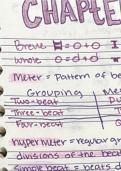 CHAPTE
Breve = o + o
Whole o = d + d
Meter = Pattern of be
Grouping Me
Two-beat D
Three-beat T
Four-beat Q
hypermeter = regular gr
divisions of the beat
Simple beat = beats d